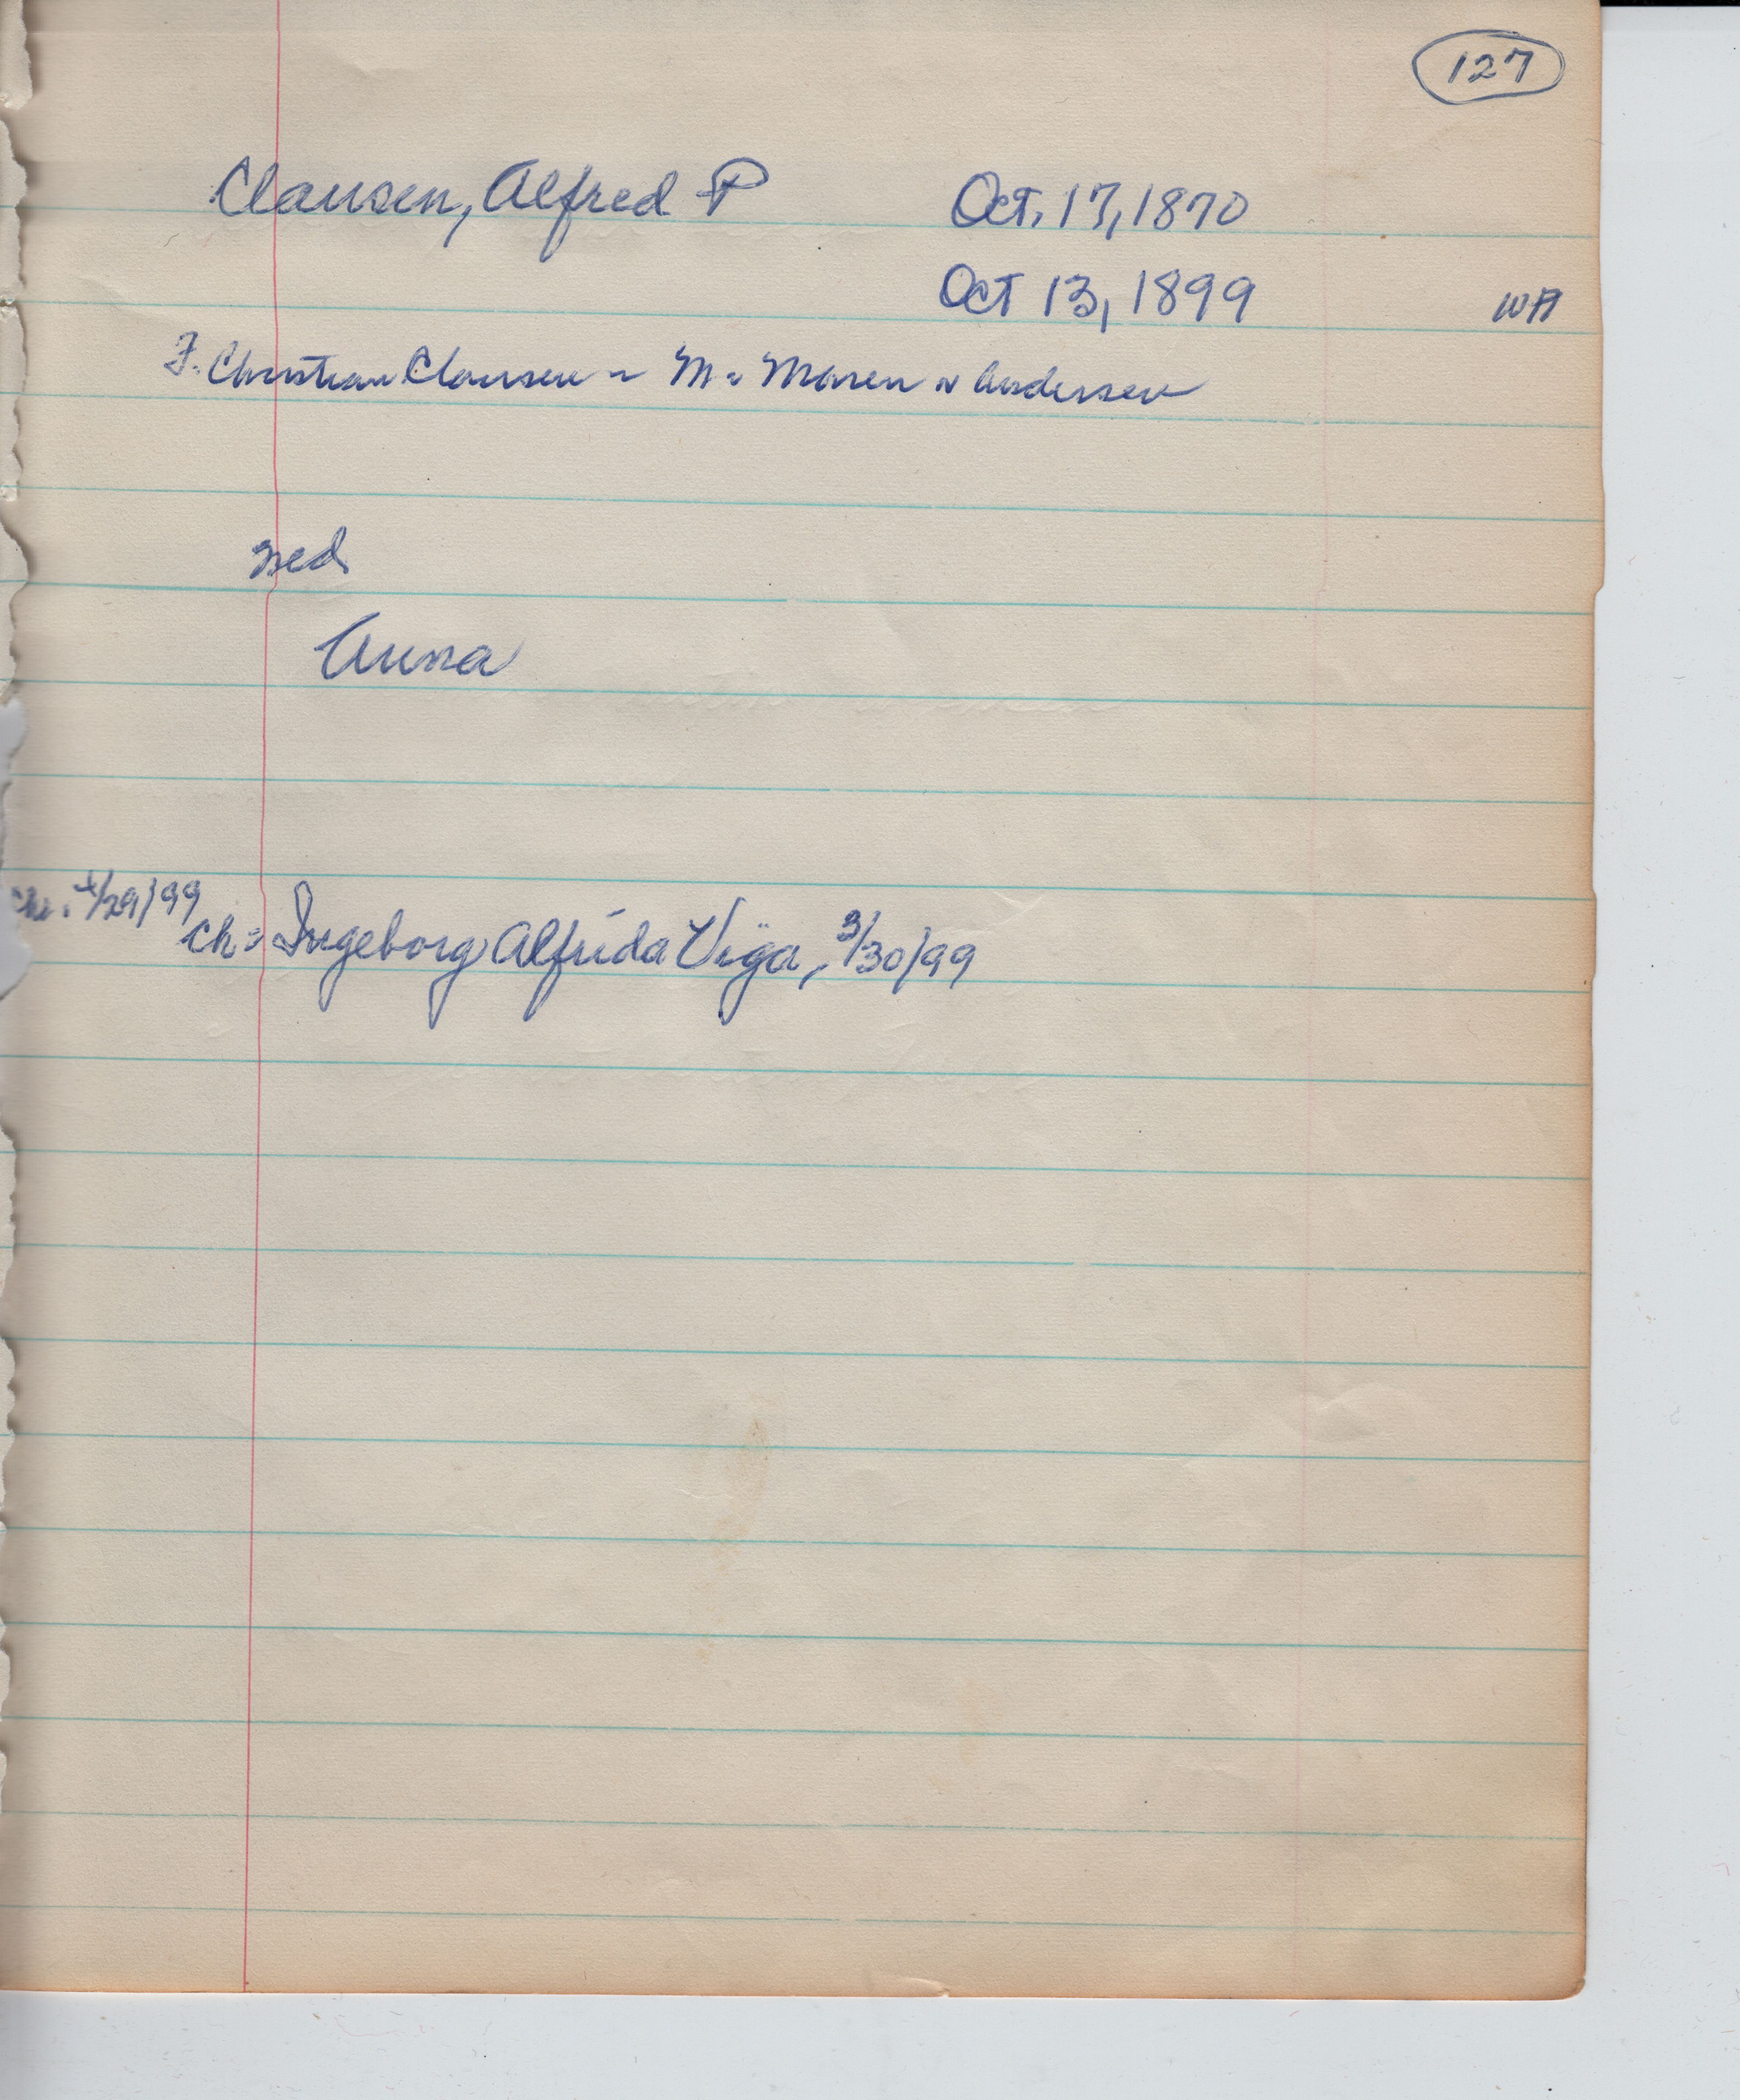 127
Clausen, Alfred P Oct. 17, 1870
Oct 13, 1899 WA
F. Christian Clausen ~ M. Maren ~ Andersen
med
Anna
/29/99
Ch: Ingeborg Alfrida Viga, 3/30/99